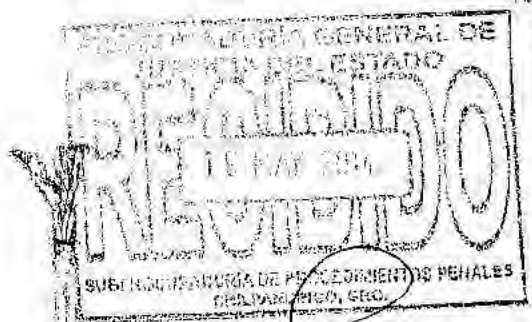 PROCURADURÍA GENERAL DE
JUSTICIA DEL ESTADO
RECIBIDO
MAY
SUBPROCURADURÍA DE PROCEDIMIENTOS PENALES
CHILPANCINGO, GRO.